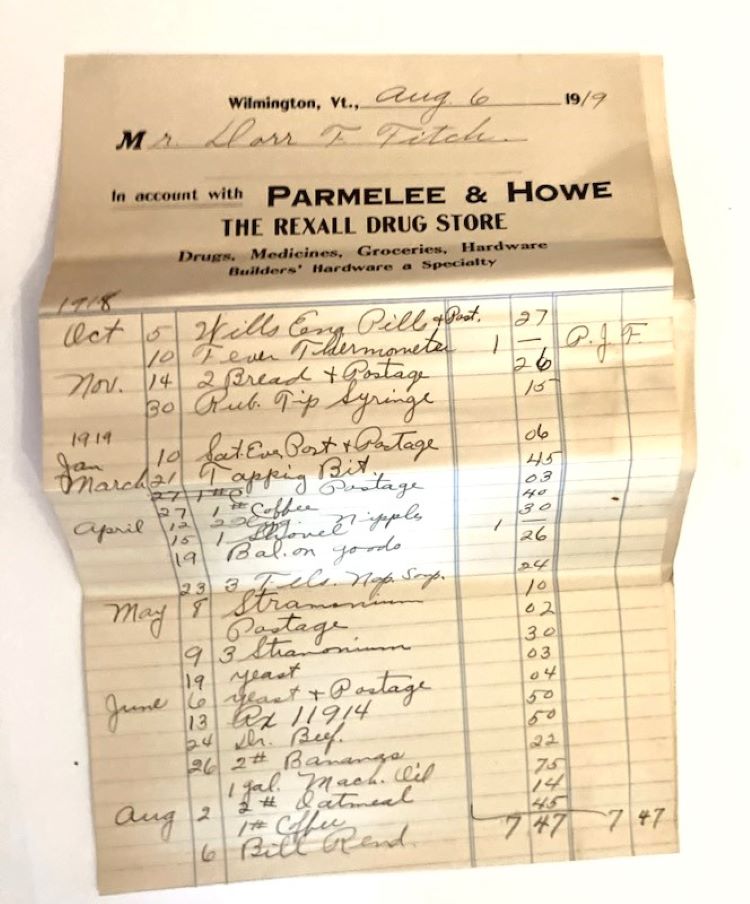 Wilmington, Vt., Aug. 6 1919
Mr. Dorr F. Fitch
In account with PARMELEE & HOWE
THE REXALL DRUG STORE
Drugs, Medicines, Groceries, Hardware
Builders' Hardware a Specialty
1918
Oct 5 Wills Eng Pills & Post. 27
10 Fever Thermometer 1 — P. J. F.
Nov. 14 2 Bread & Postage 26
30 Rub. Tip Syringe 15
1919
Jan 10 Sat. Eve Post & Postage 06
March 21 Tapping Bit. 45
27 Postage 03
27 1# Coffee 40
April 12 2 Nipples 30
15 1 Shovel 1 —
19 Bal. on goods 26
23 3 Nap. Soap. 24
May 8 Stramonium 10
Postage 02
9 3 Stramonium 30
19 Yeast 03
June 6 Yeast & Postage 04
13 Rx 11914 50
24 Dr. Beef. 50
26 2# Bananas 22
1 gal. Mach. Oil 75
Aug 2 2# Oatmeal 14
1# Coffee 45
6 Bill Rend. 7 47 7 47